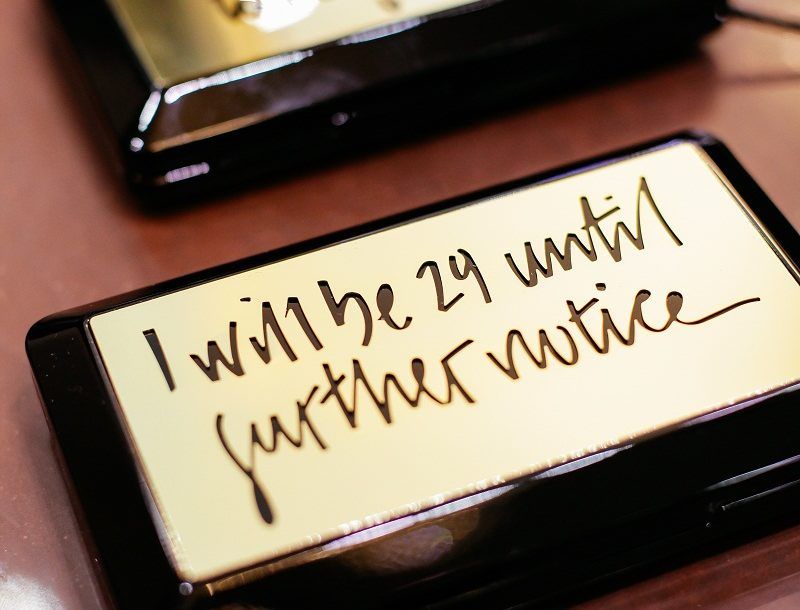 I will be 29 until
further notice